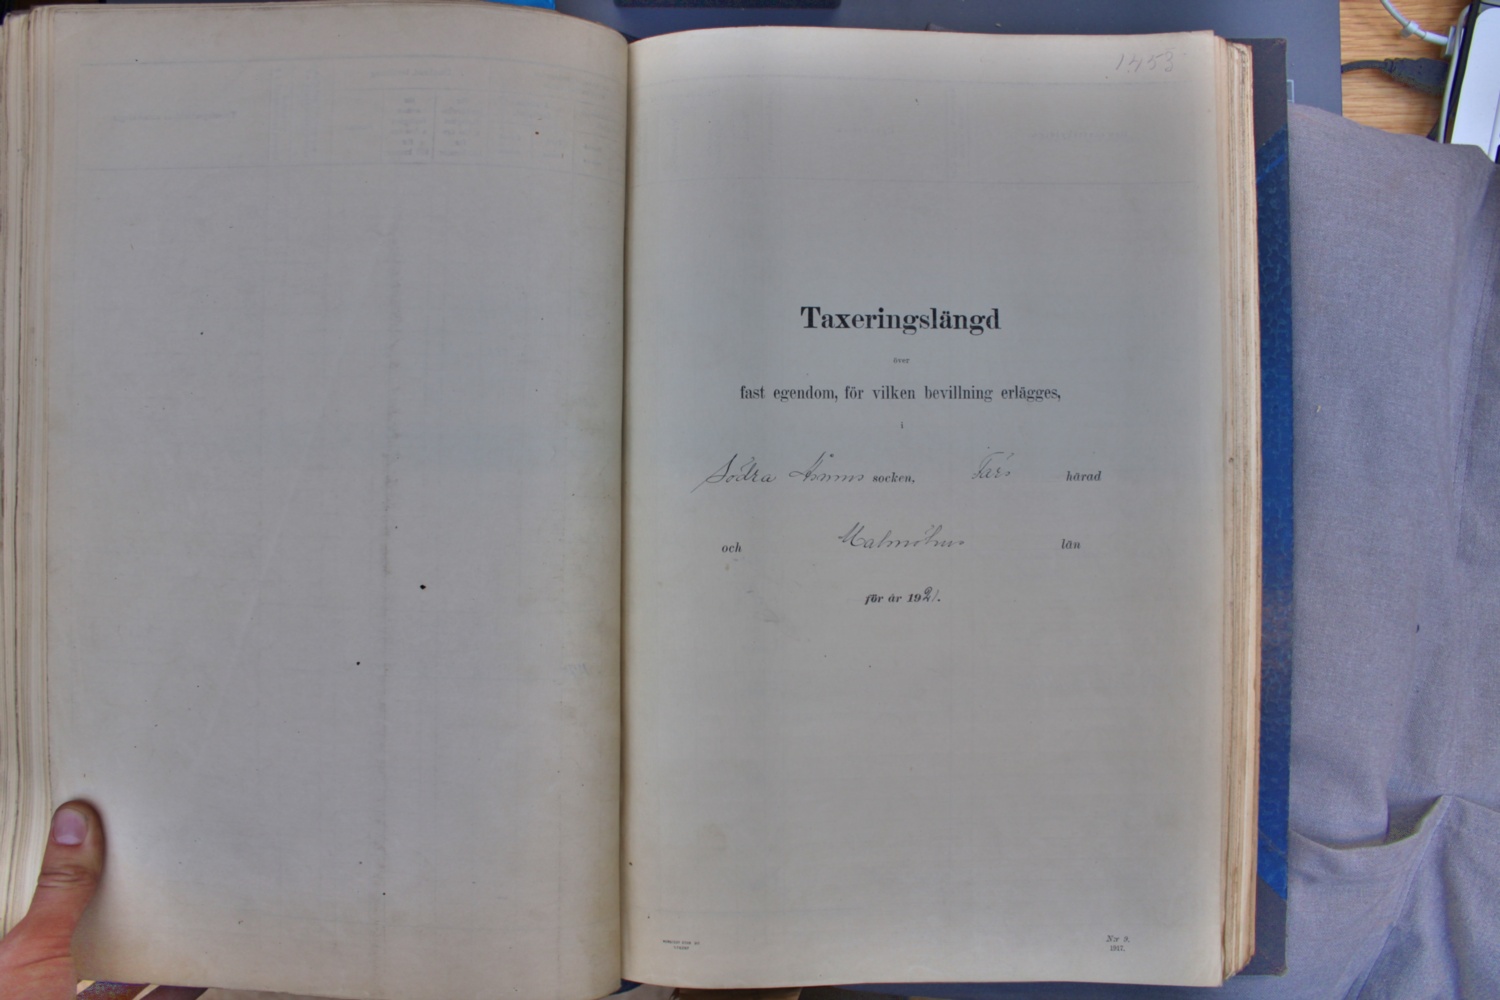 1453
Taxeringslängd
över
fast egendom, för vilken bevillning erlägges,
i
Södra Åsums socken, Färs härad
och Malmöhus län
för år 1921.
N:r 9.
1917.